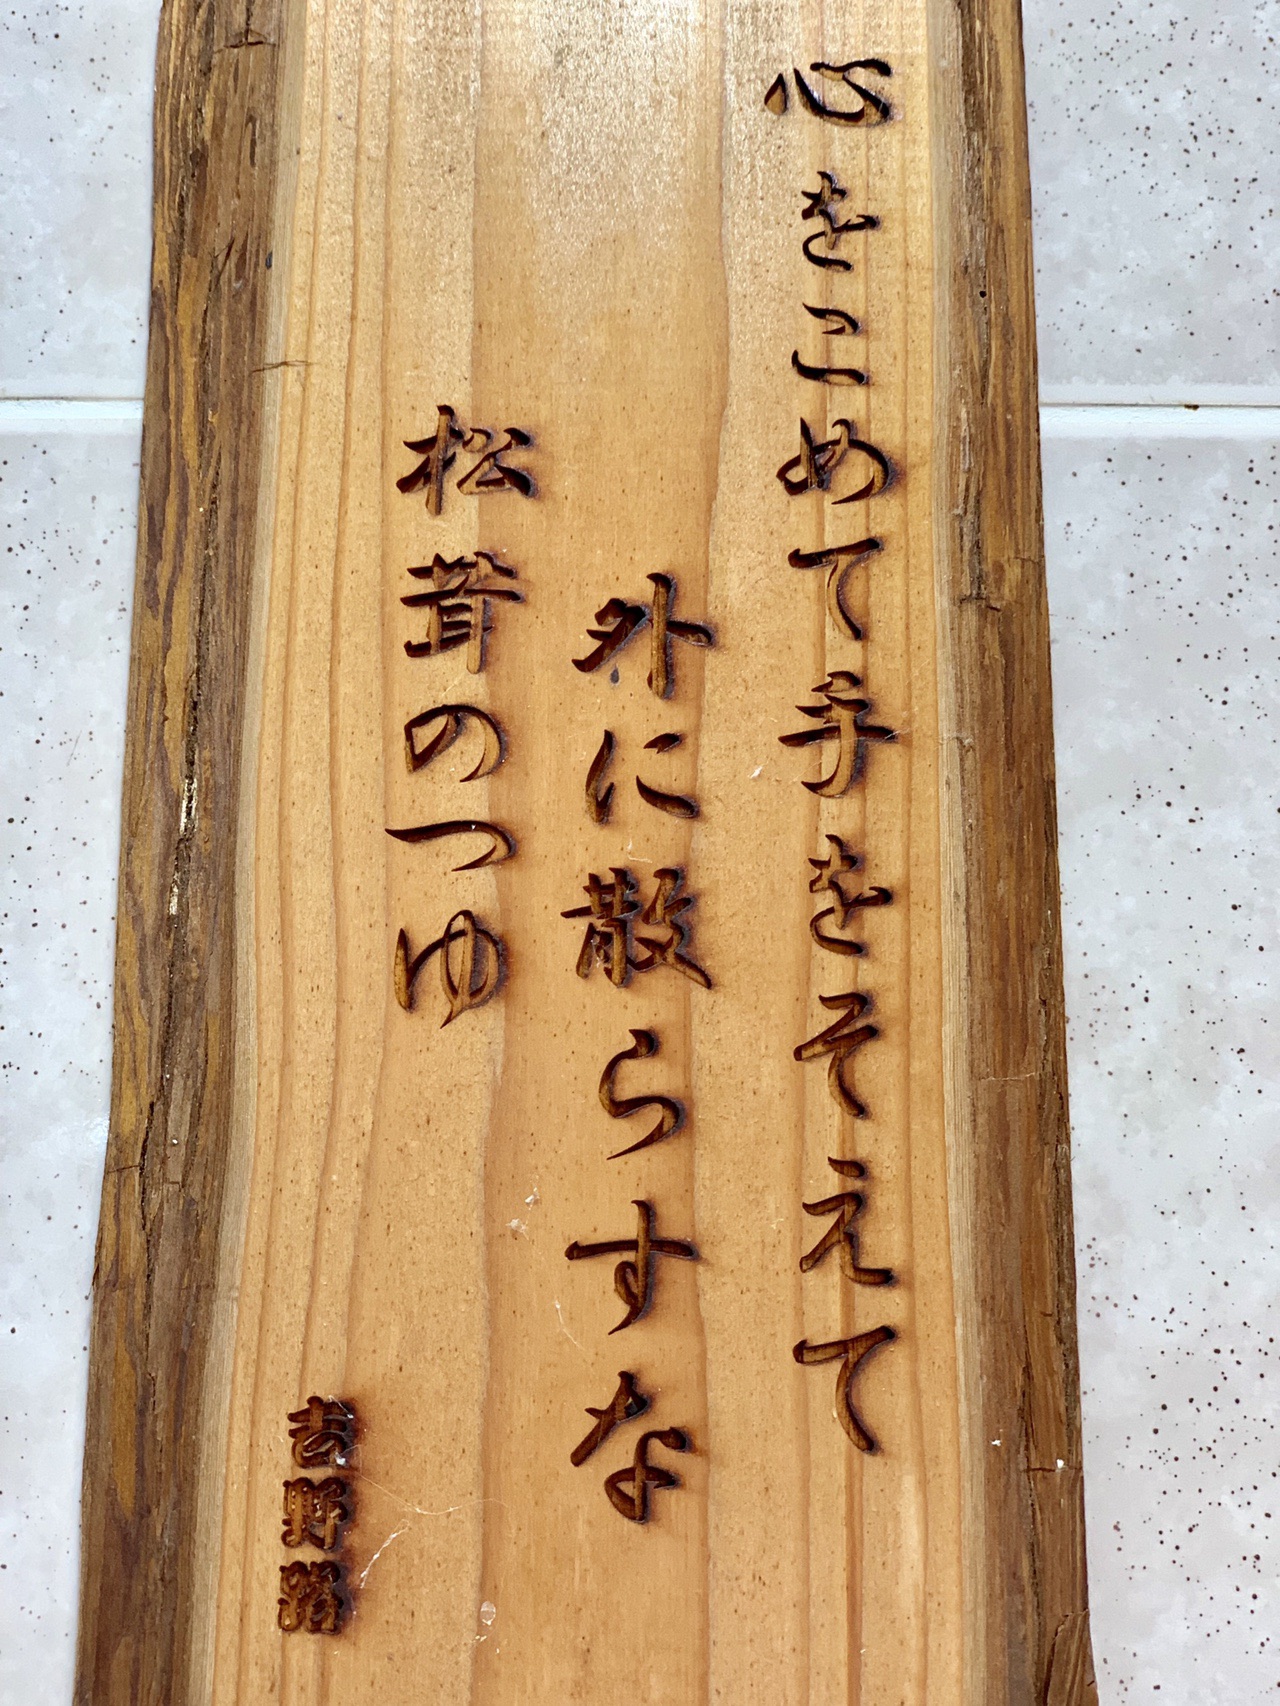 心をこめて手をそえて
外に散らすな
松茸のつゆ
吉野路